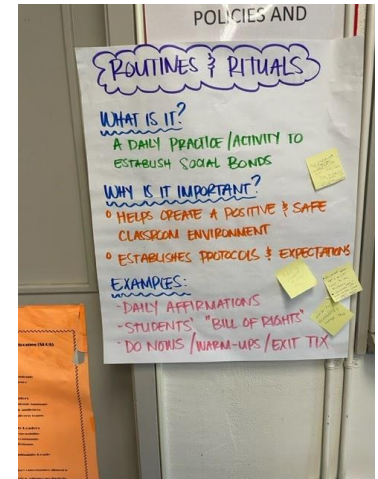 POLICIES AND
ROUTINES & RITUALS
WHAT IS IT?
A DAILY PRACTICE/ACTIVITY TO
ESTABLISH SOCIAL BONDS
WHY IS IT IMPORTANT?
° HELPS CREATE A POSITIVE & SAFE
CLASSROOM ENVIRONMENT
° ESTABLISHES PROTOCOLS & EXPECTATIONS
EXAMPLES:
-DAILY AFFIRMATIONS
-STUDENTS' "BILL OF RIGHTS"
-DO NOWS/WARM-UPS/EXIT TIX